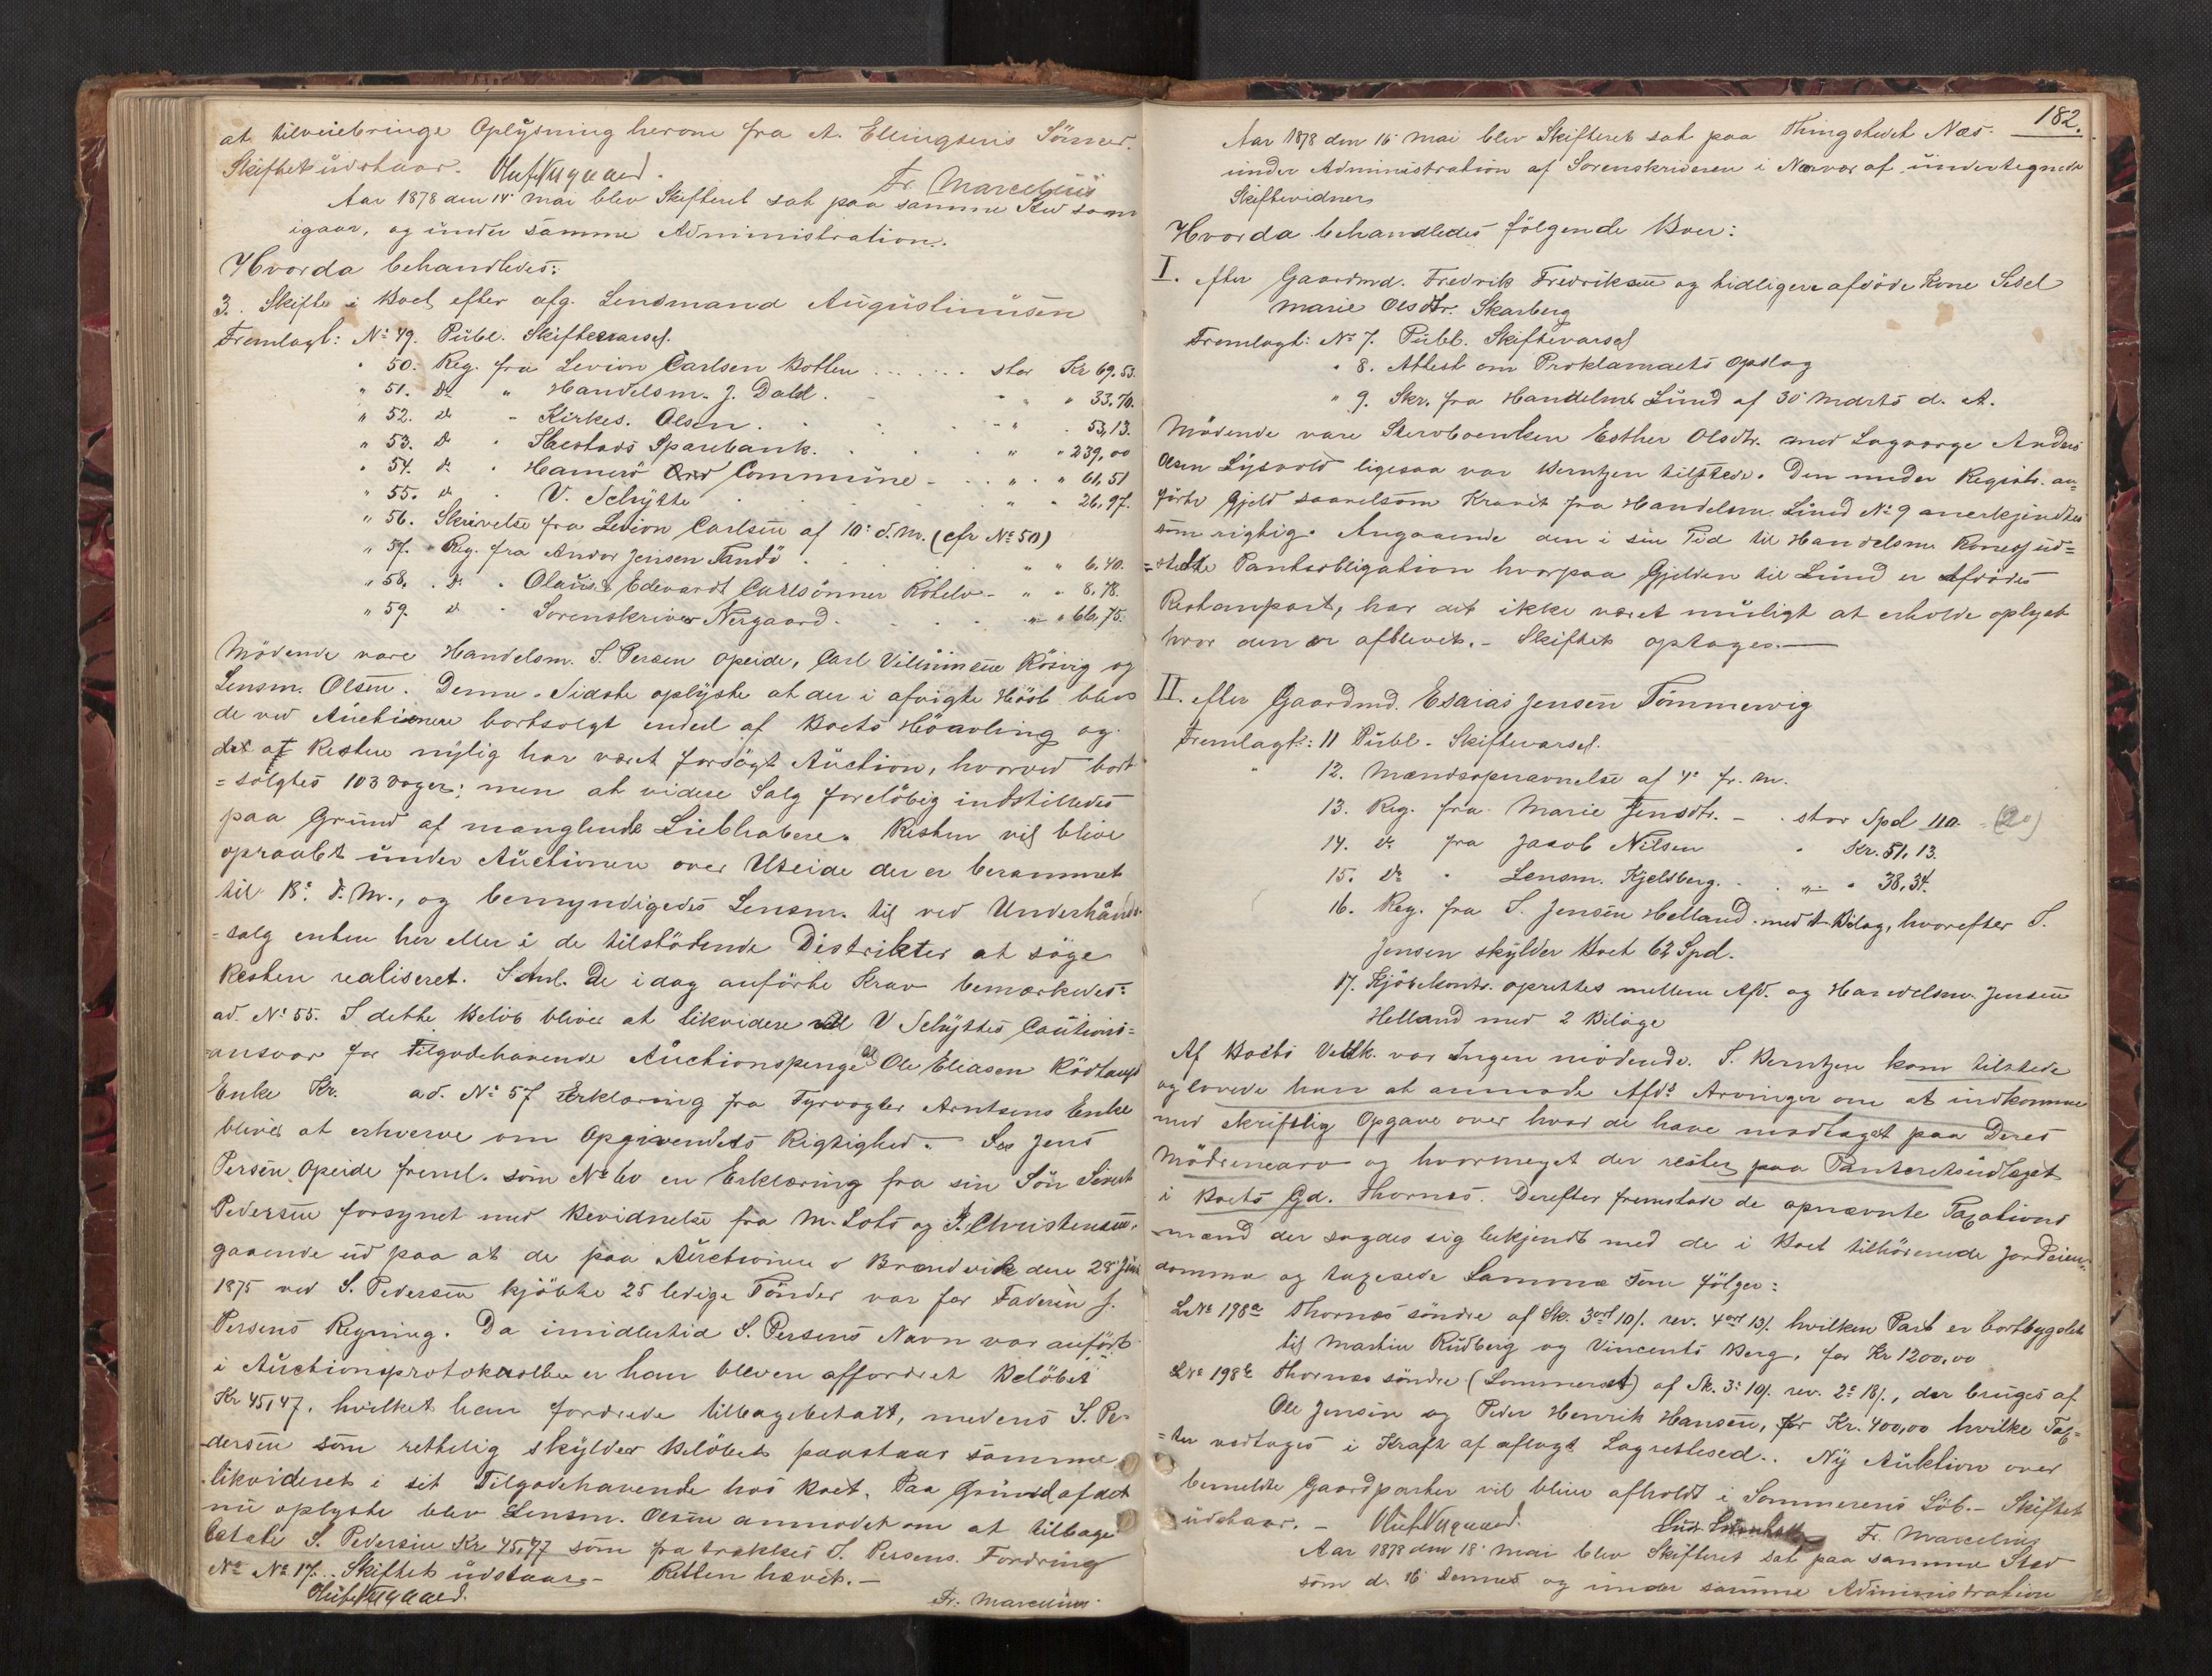 at tilveiebringe Oplysning herom fra A. Ellingsens Sönner.
Skiftet udstaar. Fr. Marcelius
Aar 1878 den 14de Mai blev Skifteret sat paa samme Sted som
igaar, og under samme Administration.
Hvorda behandledes:
3. Skifte i Boet efter afg. Lensmand Augustinusen
Fremlagt: No 49. Publ. Skiftevarsel.
" 50. Reg. fra Levion Carlsen Botten ... stor Kr 69.53.
" 51. do " Handelsm. J. Dahl. " " 33,70.
" 52. do " Kirkes. Olsen. " " 53,13.
" 53. do " Sparebank. " " 239,00
" 54. do " Hamerö Commune " " 61,51
" 55. do " V. Schytte " " 26,97.
" 56. Skrivelse fra Levion Carlsen af 10de d.M. (cfr No 50)
" 57. Reg. fra Andor Jensen Tandö " " 6,40.
" 58. do " Olaus & Edevardt Carlsönner " " 8,78.
" 59. do " Sorenskriver Nergaard. " " 66,75.
Mödende vare Handelsm. J. Persen Opeide, Carl Villumsen Rösvig og
Lensm. Olsen. Denne Sidste oplyste at der i afvigte Höst blev
de ved Auctionen bortsolgt endel af Boets Höavling og
det af Resten nylig har været forsögt Auction, hvorved bort
=solgtes 103 Voger; men at videre Salg foreløbig indstilledes
paa Grund af manglende Liebhabere. Resten vil blive
opraabt under Auctionen over Uteide der er berammet
til 18de d.M., og bemyndigedes Lensm. til ved Underhaands-
=salg enten her eller i de tilstödende Distrikter at söge
Resten realiseret. I Anl. de i dag anförte Krav bemærkedes:
ad. No 55. I dette Belöb bliver at likvidere V Schyttes Cautions=
=ansvar for Tilgodehavende Auctionspenge Ole Eliasen
Enke Kr. ad. No 57 Erklæring fra Fyrvogter Arntsens Enke
bliver at erhverve om Opgivendets Rigtighed. Jens
Persen Opeide freml. som No 60 en Erklæring fra sin Sön Sivert
Pedersen forsynet med Bevidnelse fra M. Lots og J. Christensen,
gaaende ud paa at de paa Auctionen i Brandvik den 28de Juni
1875 ved S. Pedersen kjöbte 25 ledige Tönder var for Faderen J.
Persens Regning. Da imidlertid S. Persens Navn var anfört
i Auctionsprotokollen er han bleven affordret Belöbet
Kr 45,47, hvilket han fordrede tilbagebetalt, medens J. Pe-
dersen som rettelig skylder Belöbet paastaar samme
likvideret i sit Tilgodehavende hos Boet. Paa Grund af det
nu oplyste blev Lensm. Olsen anmodet om at tilbage
betale S. Pedersen Kr 45,47 som fratrækkes J. Persens Fordring
No 17. Skiftet udstaar. Retten hævet.
Fr. Marcelius
182.
Aar 1878 den 16 Mai blev Skifteret sat paa Thingstedet Næs
under Administration af Sorenskriveren i Nærvær af undertegnede
Skiftevidner
Hvorda behandledes fölgende Boer:
I. efter Gaardmd. Fredrik Fredriksen og tidligere afdöde Kone Sesel
Marie Olsdtr. Skarberg
Fremlagt: No 7. Publ. Skiftevarsel
" 8. Attest om Proklamaets Opslag
" 9. Skr. fra Handelsm. Lund af 30 Marts d. A.
Mödende vare Stervboenken Esther Olsdtr. med Lagværge Anders
Olsen Lysvold ligesaa var Berntzen tilstede. Den under Registr. an=
förte Gjeld saavelsom Kravet fra Handelsm. Lund No 9 anerkjendtes
som rigtig. Angaaende den i sin Tid til Handelsm. ud=
=stedte Panteobligation hvorpaa Gjelden til Lund er Afdödes
Restanpart, har det ikke været muligt at erholde oplyst
hvor den er afblevet. Skiftet optages.
II. efter Gaardmd. Esaias Jensen Tömmervig
Fremlagt: 11 Publ. Skiftevarsel.
12. Mændsopnævnelse af 4de f. M.
13. Reg. fra Marie Jensdtr. stor Spd 110. (20)
14. do fra Jacob Nilsen " Kr. 51,13.
15. do " Lensm. Kjeldsberg. " " 38,34.
16. Reg. fra S. Jensen Helland med 1 Bilag, hvorefter S.
Jensen skylder Boet 62 Spd.
17. Kjöbekontr. oprettet mellem Afd. og Handelsm. Jensen
Helland med 2 Bilage
Af Boets Vedk. var Ingen mödende. S. Berntzen kom tilstede
og lovede han at anmode Afds Arvinger om at indkomme
med skriftlig Opgave over hvad de have modtaget paa Deres
Mödrenearv og hvormeget der rester paa Panteretsudlæget
i Boets Gd. Thornes. Derefter fremstod de opnævnte Taxations
mænd der sagdes sig bekjendt med de i Boet tilhörende Jordeien-
domme og taxerede Samme som fölger:
LNo 198a Thornæs söndre af Sk. 3ort 10/. rev. 4ort 13/. hvilken Part er bortbygslet
til Martin Rudberg og Vincents Berg, for Kr 1200,00
LNo 198b Thornæs söndre (Sommerset) af Sk. 3: 10/. rev. 2: 18/., der bruges af
Ole Jensen og Peder Henrik Hansen, for Kr. 400,00 hvilke Tax=
=ter vedtages i Kraft af aflagt Lagrettesed. Ny Auktion over
bemeldte Gaardparter vil blive afholdt i Sommerens Löb. Skiftet
udstaar. Fr. Marcelius
Aar 1878 den 18 Mai blev Skifteret sat paa samme Sted
som d. 16 dennes og under samme Administration